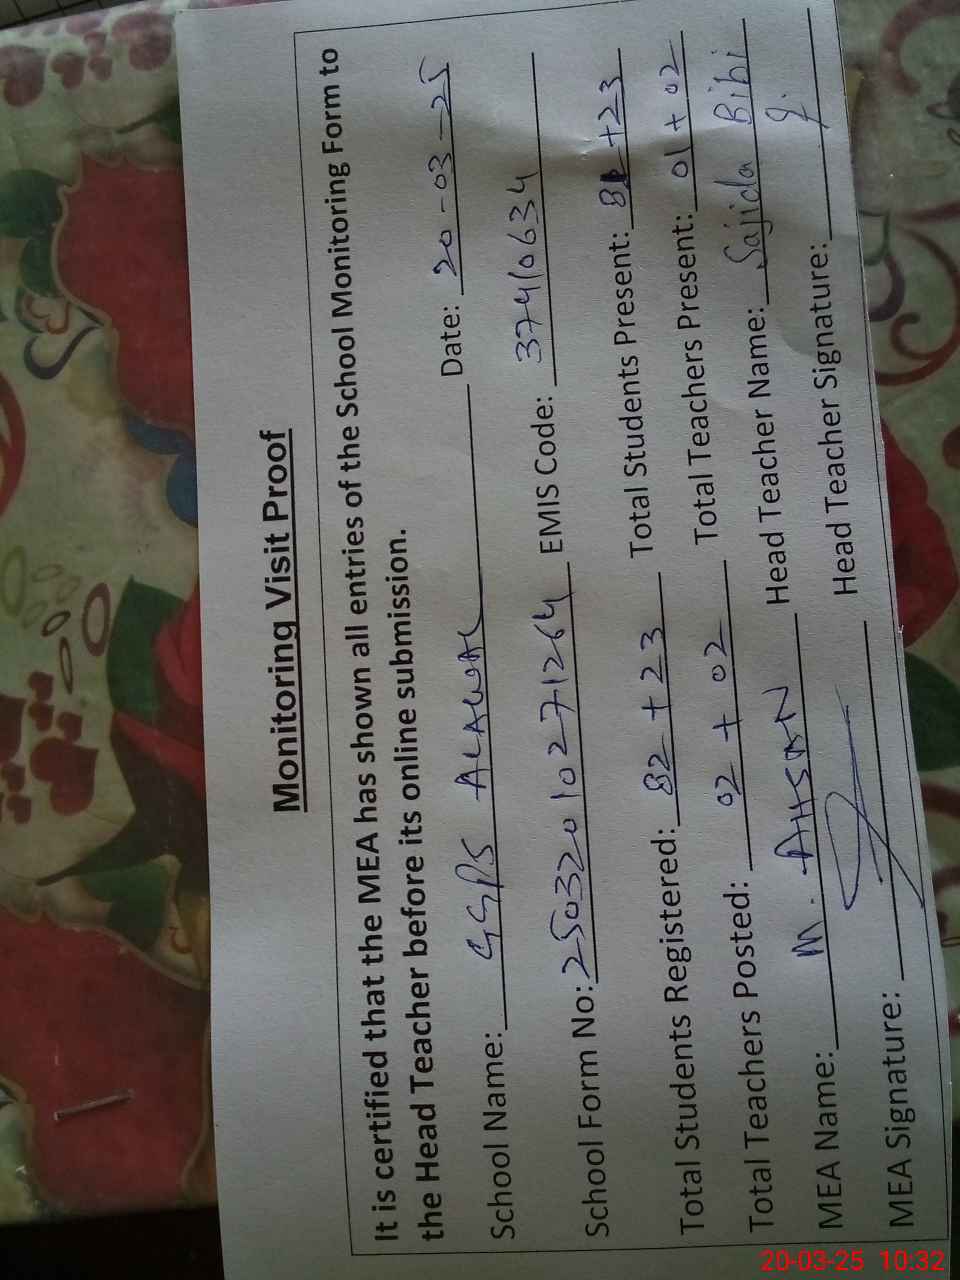 Monitoring Visit Proof
It is certified that the MEA has shown all entries of the School Monitoring Form to
the Head Teacher before its online submission.
School Name: GGPS ALAWAL Date: 20-03-25
School Form No: 25032010271264 EMIS Code: 37410634
Total Students Registered: 82 + 23 Total Students Present: +23
Total Teachers Posted: 02 + 02 Total Teachers Present: 01 + 02
MEA Name: M. AHSAN Head Teacher Name: Sajida Bibi
MEA Signature: Head Teacher Signature:
20-03-25 10:32